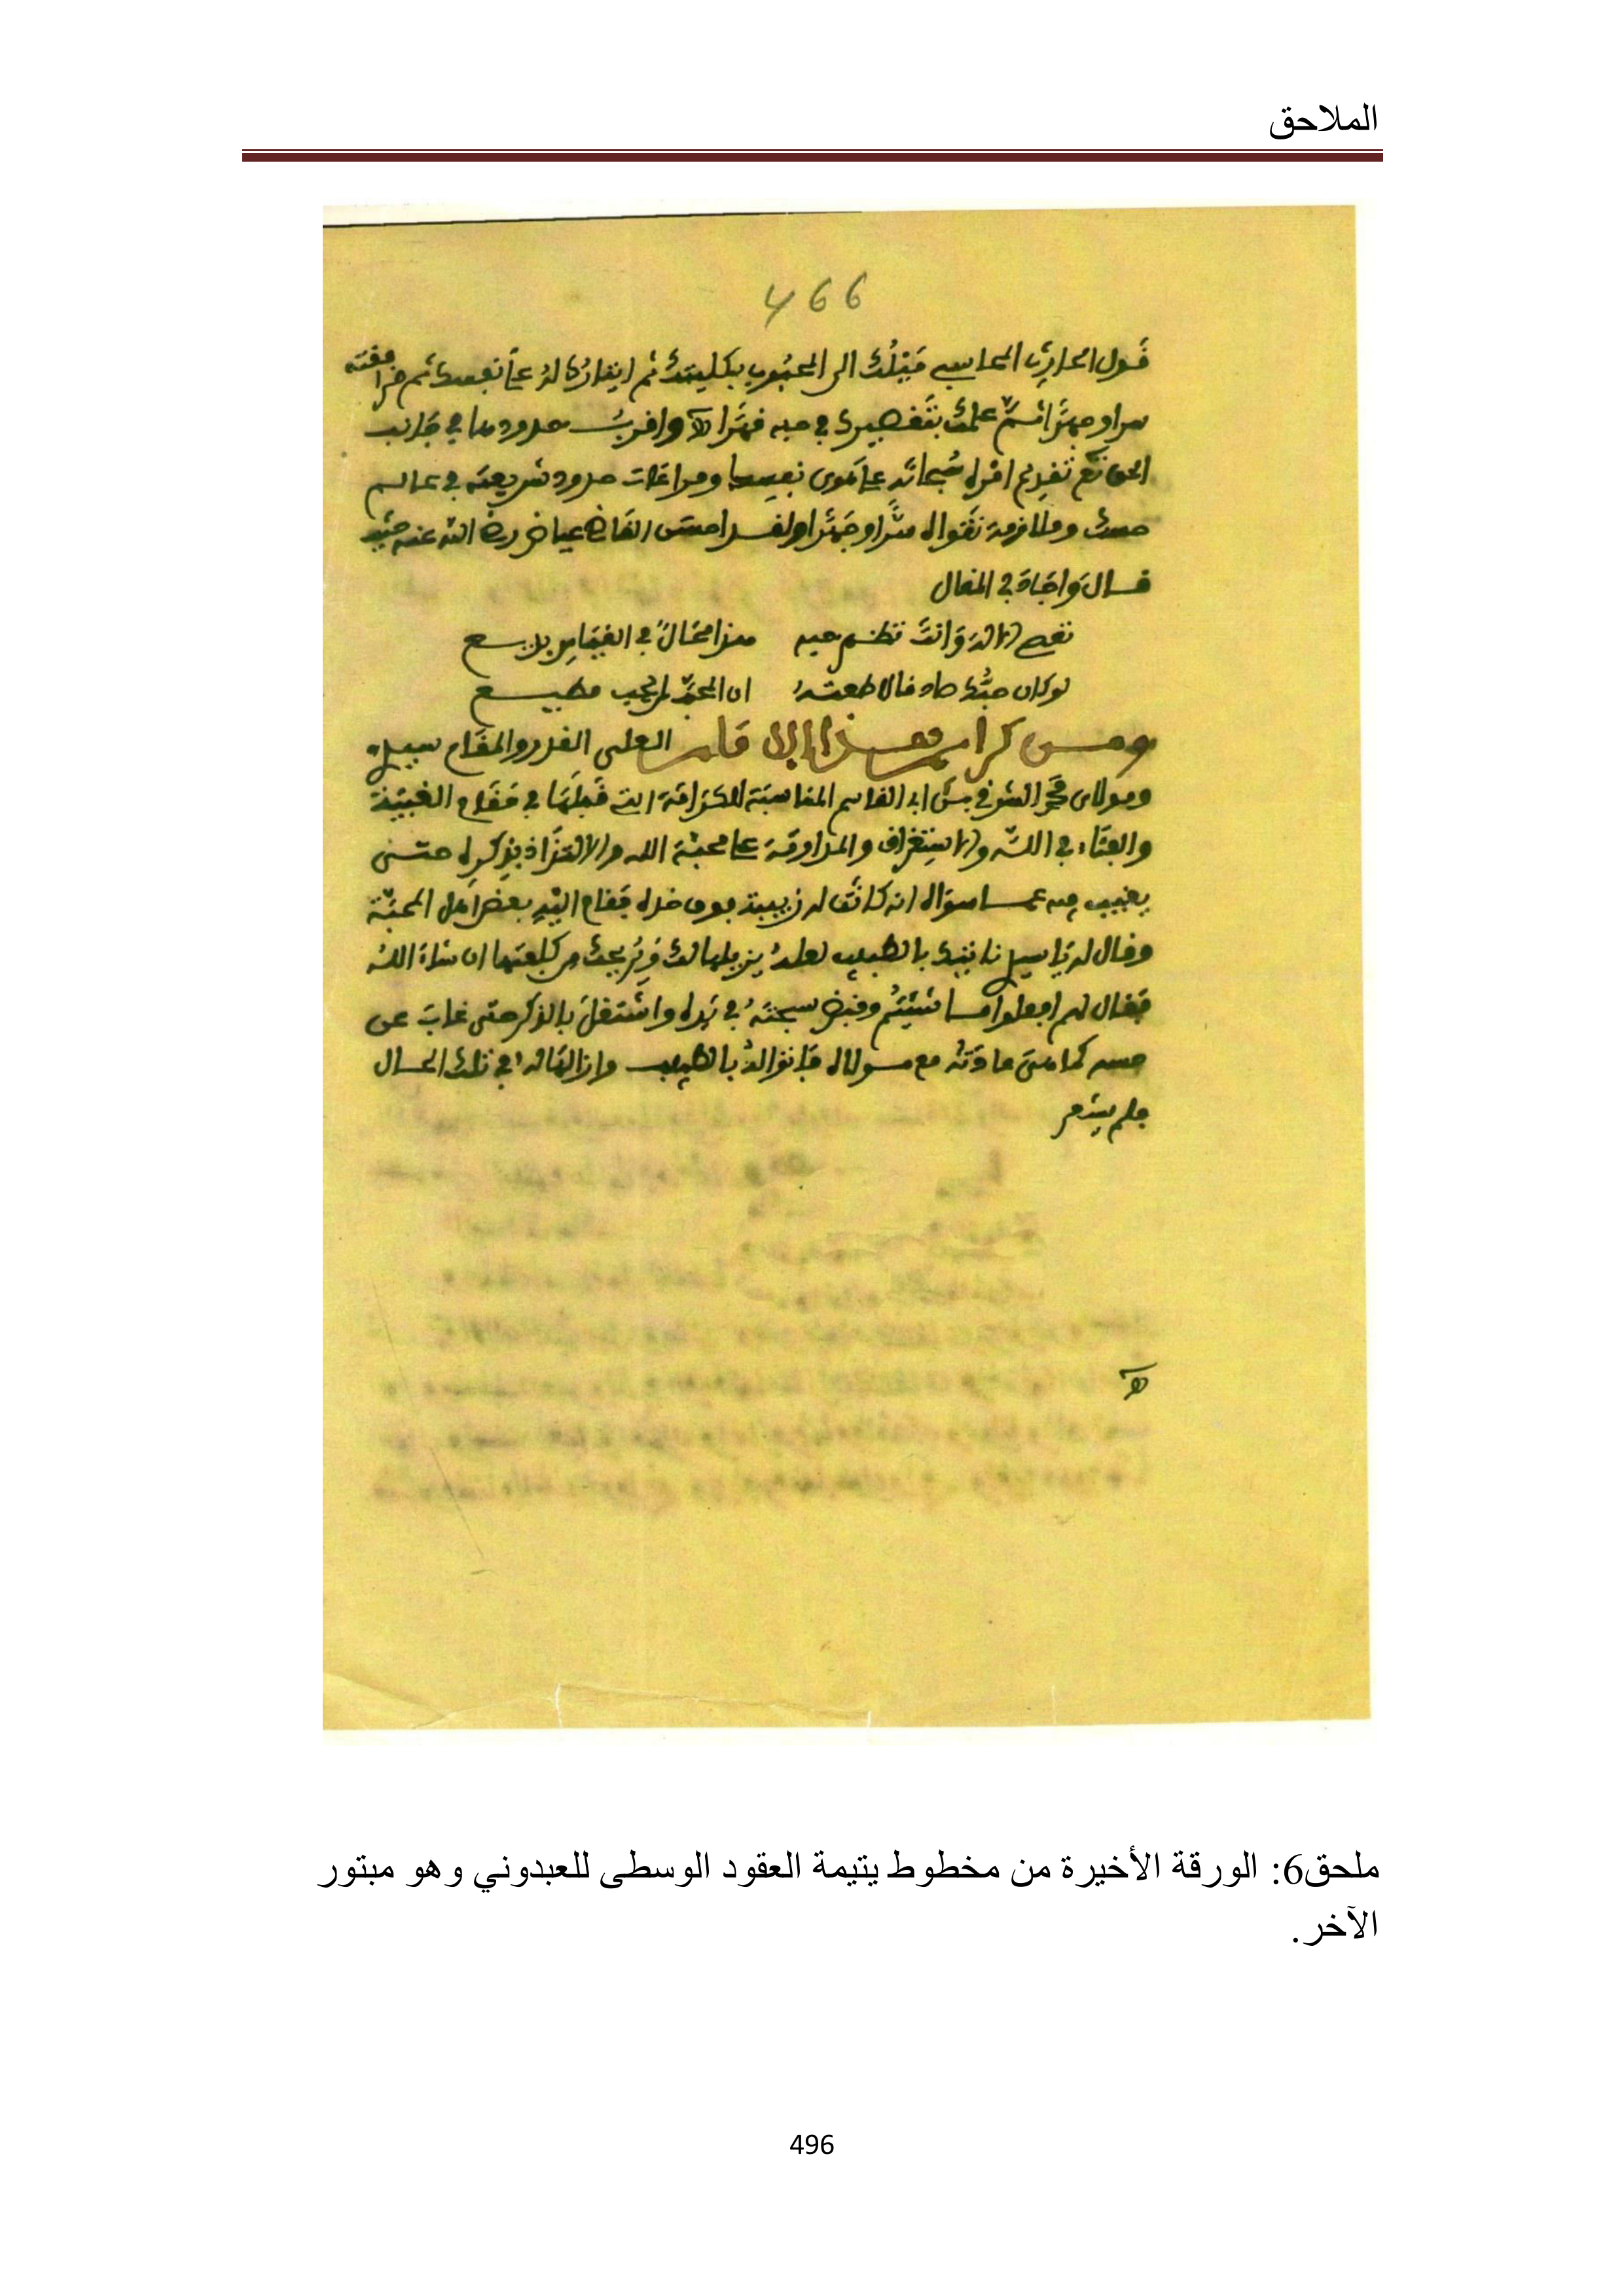 الملاحق
466
قول الحارث المحاسبي ميلك الى المحبوب بكليتك ثم ايثارك له على نفسك ثم موافقته
سرا وجهرا ثم علمك بتقصيرك في حبه واقرب حدودها في جانب
الحق تع تقديم امره سبحانه على هوى نفسك ومراعات حدود شريعته في عالم
حسك وملازمة تقواه سرا وجهرا ولقد احسن القاضي عياض رضي الله عنه حيث
قال واجاد في المقال
تعصي الاله وانت تظهر حبه هذا محال في القياس بديع
لو كان حبك صادقا لاطعته ان المحب لمن يحب مطيع
ومن كرامة هذا الامام العلي القدر والمقام سيدي
ومولاي محمد الشرفي بن ابي القاسم المناسبة للكرامة التي قبلها في مقام الغيبة
والفناء في الله والاستغراق والمداومة على محبة الله والالتذاذ بذكره حتى
يغيب به عما سواه انه كانت له زبيبة فوق خده فقام اليه بعض اهل المحبة
وقال له يا سيدي ناتيك بالطبيب لعله يزيلها لك ويريحك من كلفتها ان شاء الله
فقال لهم افعلوا ما شئتم وقبض سبحته في يده واشتغل بالذكر حتى غاب عن
حسه كما هي عادته مع مولاه فاتوا له بالطبيب وازالها له في تلك الحال
فلم يشعر
ملحق6: الورقة الأخيرة من مخطوط يتيمة العقود الوسطى للعبدوني وهو مبتور
الآخر.
496